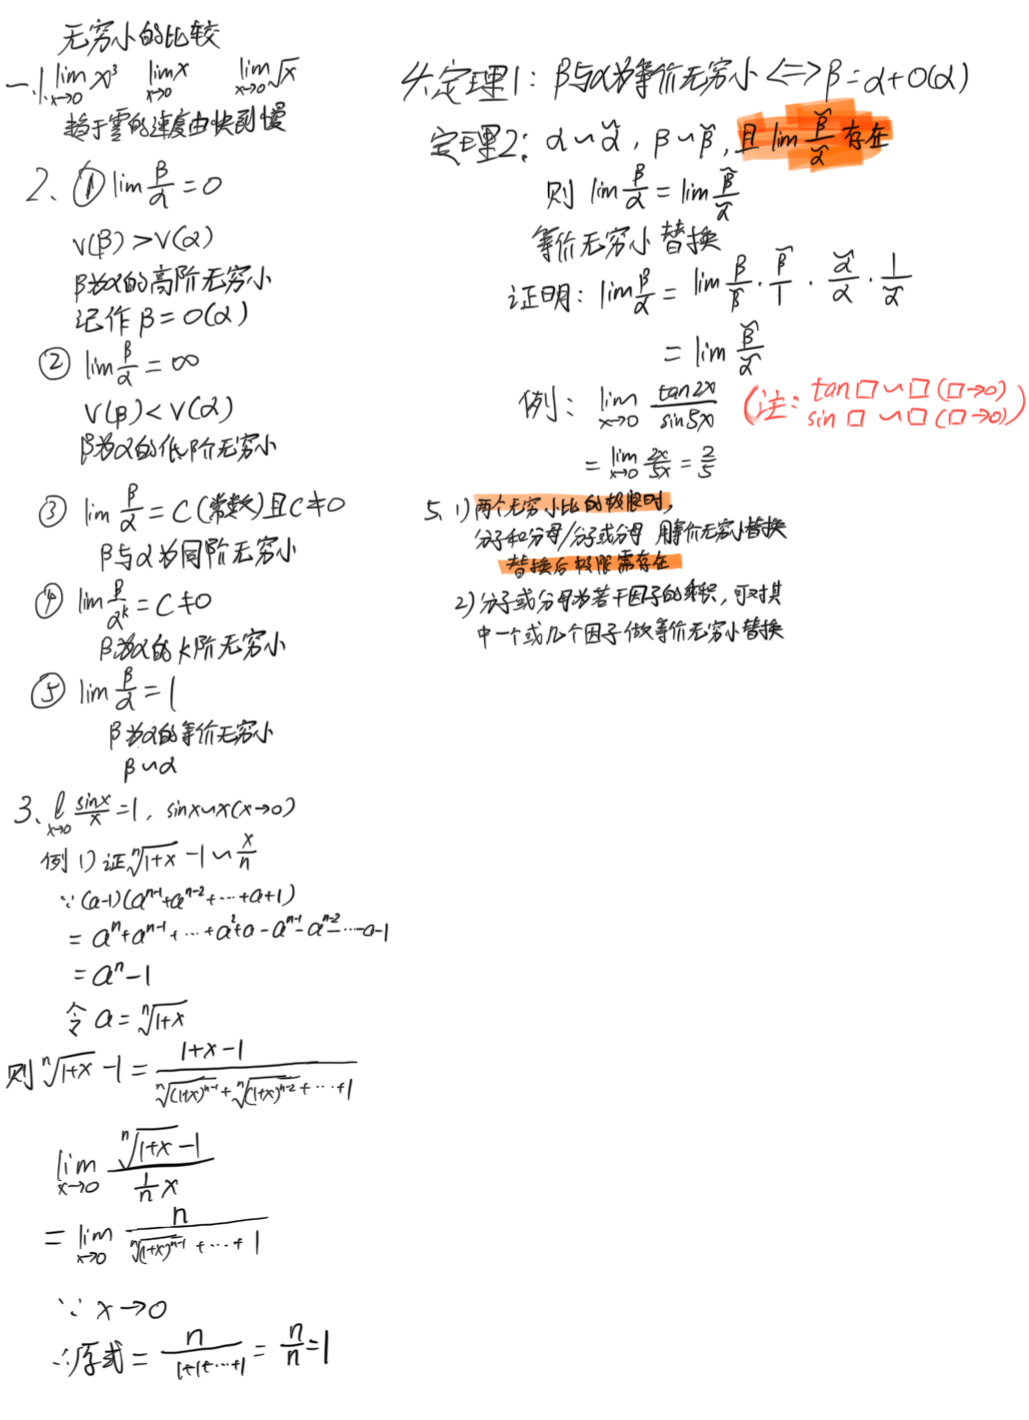 无穷小的比较
一、1. lim x→0 x³  lim x→0 x  lim x→0 √x
趋于零的速度由快到慢
2、① lim β/α = 0
V(β) > V(α)
β为α的高阶无穷小
记作 β = o(α)
② lim β/α = ∞
V(β) < V(α)
β为α的低阶无穷小
③ lim β/α = C (常数) 且 C ≠ 0
β与α为同阶无穷小
④ lim β/αᵏ = C ≠ 0
β为α的 k阶无穷小
⑤ lim β/α = 1
β为α的等价无穷小
β ∽ α
3、l x→0 sinx/x = 1, sinx ∽ x (x→0)
例 1) 证 ⁿ√(1+x) - 1 ∽ x/n
∵ (a-1)(aⁿ⁻¹+aⁿ⁻²+⋯+a+1)
= aⁿ+aⁿ⁻¹+⋯+a²+a-aⁿ⁻¹-aⁿ⁻²-⋯-a-1
= aⁿ-1
令 a = ⁿ√(1+x)
则 ⁿ√(1+x) - 1 = (1+x-1)/(ⁿ√(1+x)ⁿ⁻¹ + ⁿ√(1+x)ⁿ⁻² + ⋯ + 1)
lim x→0 (ⁿ√(1+x) - 1)/(1/n x)
= lim x→0 n/(ⁿ√(1+x)ⁿ⁻¹ + ⋯ + 1)
∵ x→0
∴原式 = n/(1+1+⋯+1) = n/n = 1
4、定理1: β与α为等价无穷小 <=> β = α + o(α)
定理2: α ∽ α̃, β ∽ β̃, 且 lim β̃/α̃ 存在
则 lim β/α = lim β̃/α̃
等价无穷小替换
证明: lim β/α = lim β/β̃ · β̃/1 · α̃/α · 1/α̃
= lim β̃/α̃
例: lim x→0 tan2x/sin5x (注: tan□ ∽ □ (□→0)
sin□ ∽ □ (□→0))
= lim x→0 2x/5x = 2/5
5、1) 两个无穷小比的极限时,
分子和分母/分子或分母 用等价无穷小替换
替换后极限需存在
2) 分子或分母为若干因子的乘积, 可对其
中一个或几个因子做等价无穷小替换